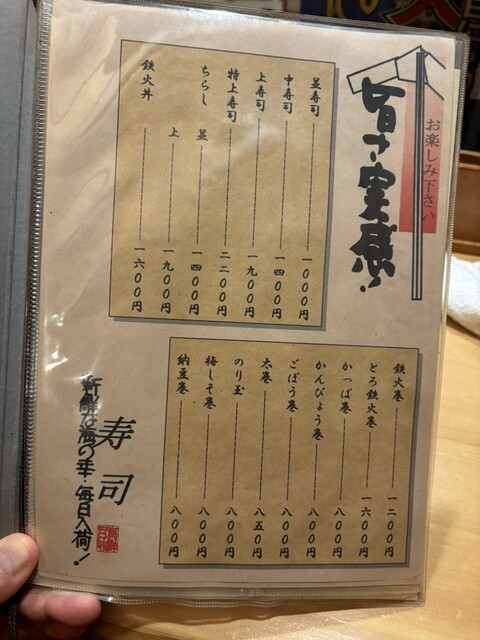 お楽しみ下さい
旨さ実感!
並寿司 一〇〇〇円
中寿司 一四〇〇円
上寿司 一九〇〇円
特上寿司 二二〇〇円
ちらし 並 一四〇〇円
上 一九〇〇円
鉄火丼 一六〇〇円
鉄火巻 一二〇〇円
とろ鉄火巻 一六〇〇円
かっぱ巻 八〇〇円
かんぴょう巻 八〇〇円
ごぼう巻 八〇〇円
太巻 八五〇円
のり玉 八〇〇円
梅しそ巻 八〇〇円
納豆巻 八〇〇円
寿司
新鮮な海の幸・毎日入荷!